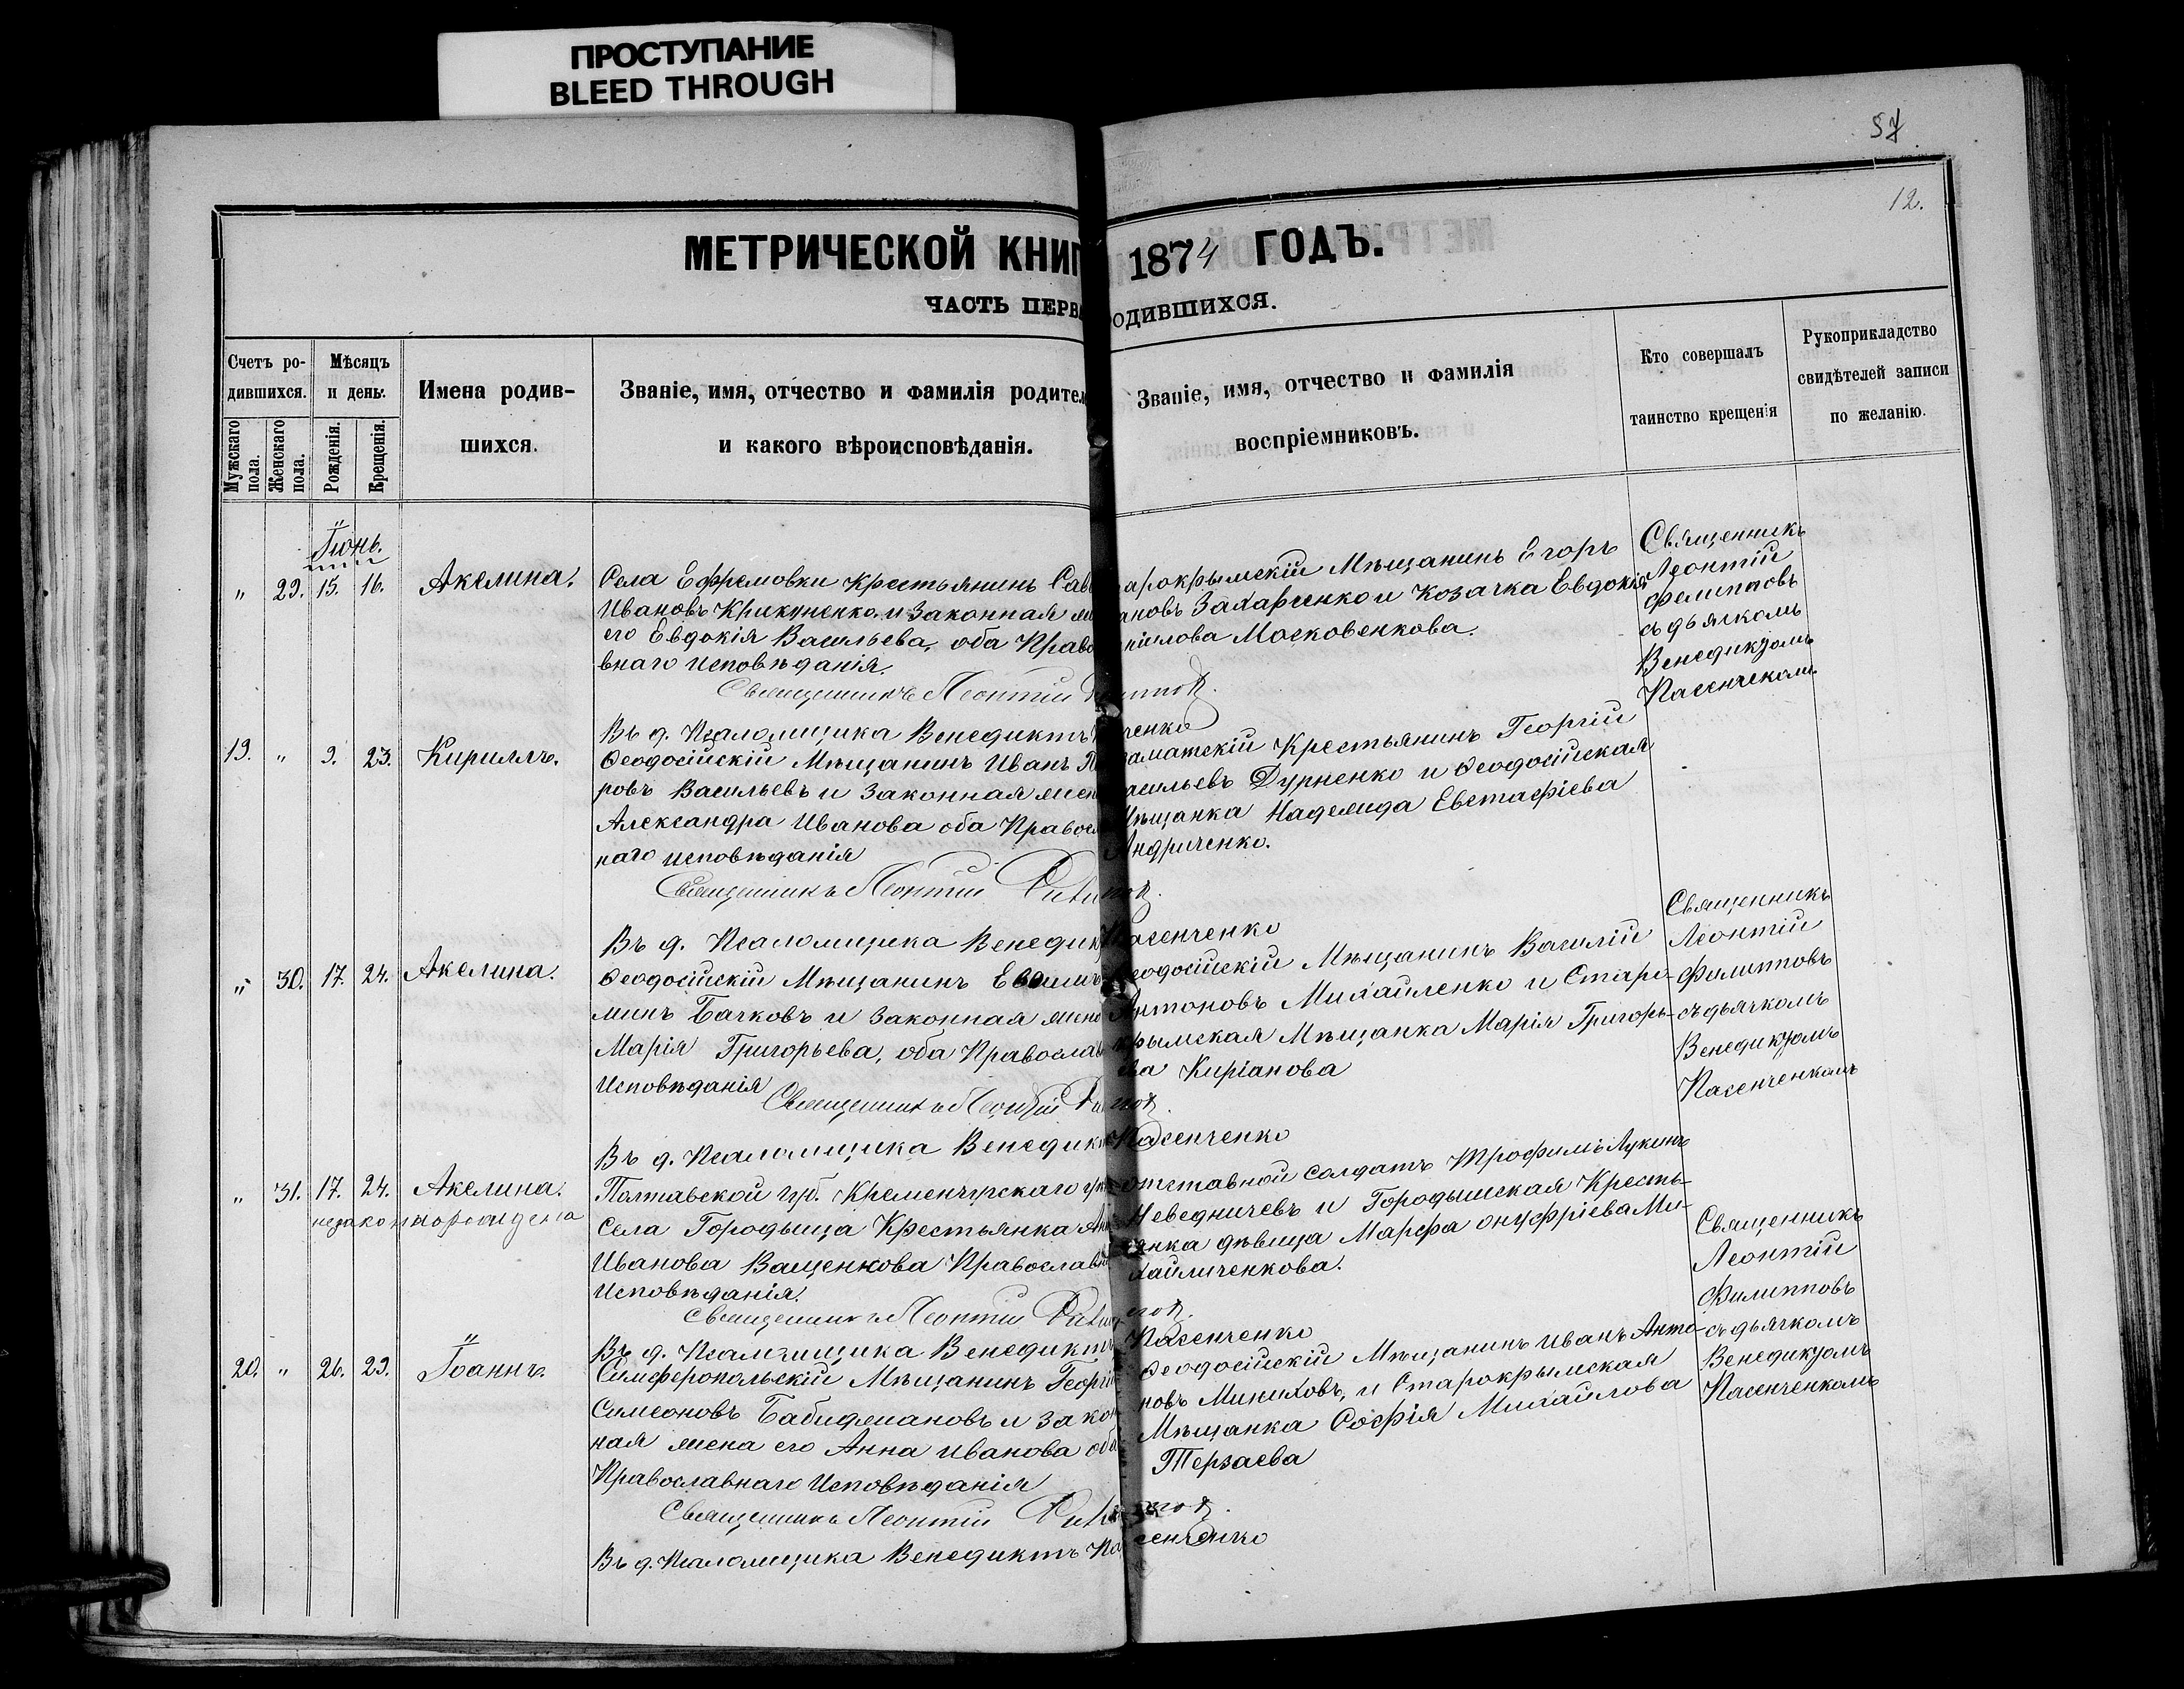 ПРОСТУПАНИЕ
BLEED THROUGH
57
12.
МЕТРИЧЕСКОЙ КНИГ
1874 ГОДЪ.
ЧАСТЬ ПЕРВА
ОДИВШИХСЯ.
Счетъ ро-
дившихся.
Мужскаго пола.
Женскаго пола.
Мѣсяцъ
и день.
Рожденія.
Крещенія.
Имена родив-
шихся.
Званіе, имя, отчество и фамилія родител
и какого вѣроисповѣданія.
Званіе, имя, отчество и фамилія
воспріемниковъ.
Кто совершалъ
таинство крещенія
Рукоприкладство
свидѣтелей записи
по желанію.
Іюнь.
" 29. 15. 16. Акелина.
Села Ефремовки Крестьянинъ Сав
Ивановъ Крикуненко и Законная
его Евдокія Васильева, оба Право
внаго исповѣданія.
Священникъ Леонтій
арокрымскій Мѣщанинъ Егоръ
ановъ Захарченко и Козачка Евдокія
ніилова Московенкова.
Священникъ
Леонтій
Филиповъ
съ дьячкомъ
Венедиктомъ
Пасенчекомъ
Въ д. Псаломщика Венедиктъ
ченко
19. " 9. 23. Кириллъ.
Феодосійскій Мѣщанинъ Иванъ
ровъ Васильевъ и Законная жен
Александра Иванова оба Правосл
наго исповѣданія
Священникъ Леонтій Фили
аматскій Крестьянинъ Георгій
асильевъ Дурненко и Феодосійская
Мѣщанка Надежда Евстафіева
Андриченко.
Въ д. Псаломщика Венедик
Пасенченко
" 30. 17. 24. Акелина.
Феодосійскій Мѣщанинъ
минъ Бачковъ и Законная жена
Марія Григорьева, оба Православ
Исповѣданія
Священникъ Леонтій
Феодосійскій Мѣщанинъ Василій
Антоновъ Михайленко и Старо-
крымская Мѣщанка Марія Григорь-
ева Киріанова
Священникъ
Леонтій
Филипповъ
съ дьячкомъ
Венедиктомъ
Пасенченкомъ
Въ д. Псаломщика Венедикт
Пасенченко
" 31. 17. 24. Акелина.
незаконнорождена
Полтавской губ. Кременчугскаго
Села Городыща Крестьянка
Иванова Ващенкова Православ
Исповѣданія.
Священникъ Леонтій Фили
отставной солдатъ Трофимъ Лукинъ
Неведничевъ и Городышская Кресть-
янка дѣвица Марфа Онуфріева Ми-
хайличенкова.
Въ д. Псаломщика Венедиктъ
Пасенченко
20. " 26. 29. Іоаннъ.
Симферопольскій Мѣщанинъ Георгій
Симеоновъ Бабиджановъ и закон
ная жена его Анна Иванова оба
Православнаго Исповѣданія
Священникъ Леонтій Фили
Феодосійскій Мѣщанинъ Иванъ Анто-
новъ Миниховъ, и Старокрымская
Мѣщанка Софія Михайлова
Терзаева
Священникъ
Леонтій
Филипповъ
съ дьячкомъ
Венедиктомъ
Пасенченкомъ
Въ д. Псаломщика Венедиктъ Па
сенченко